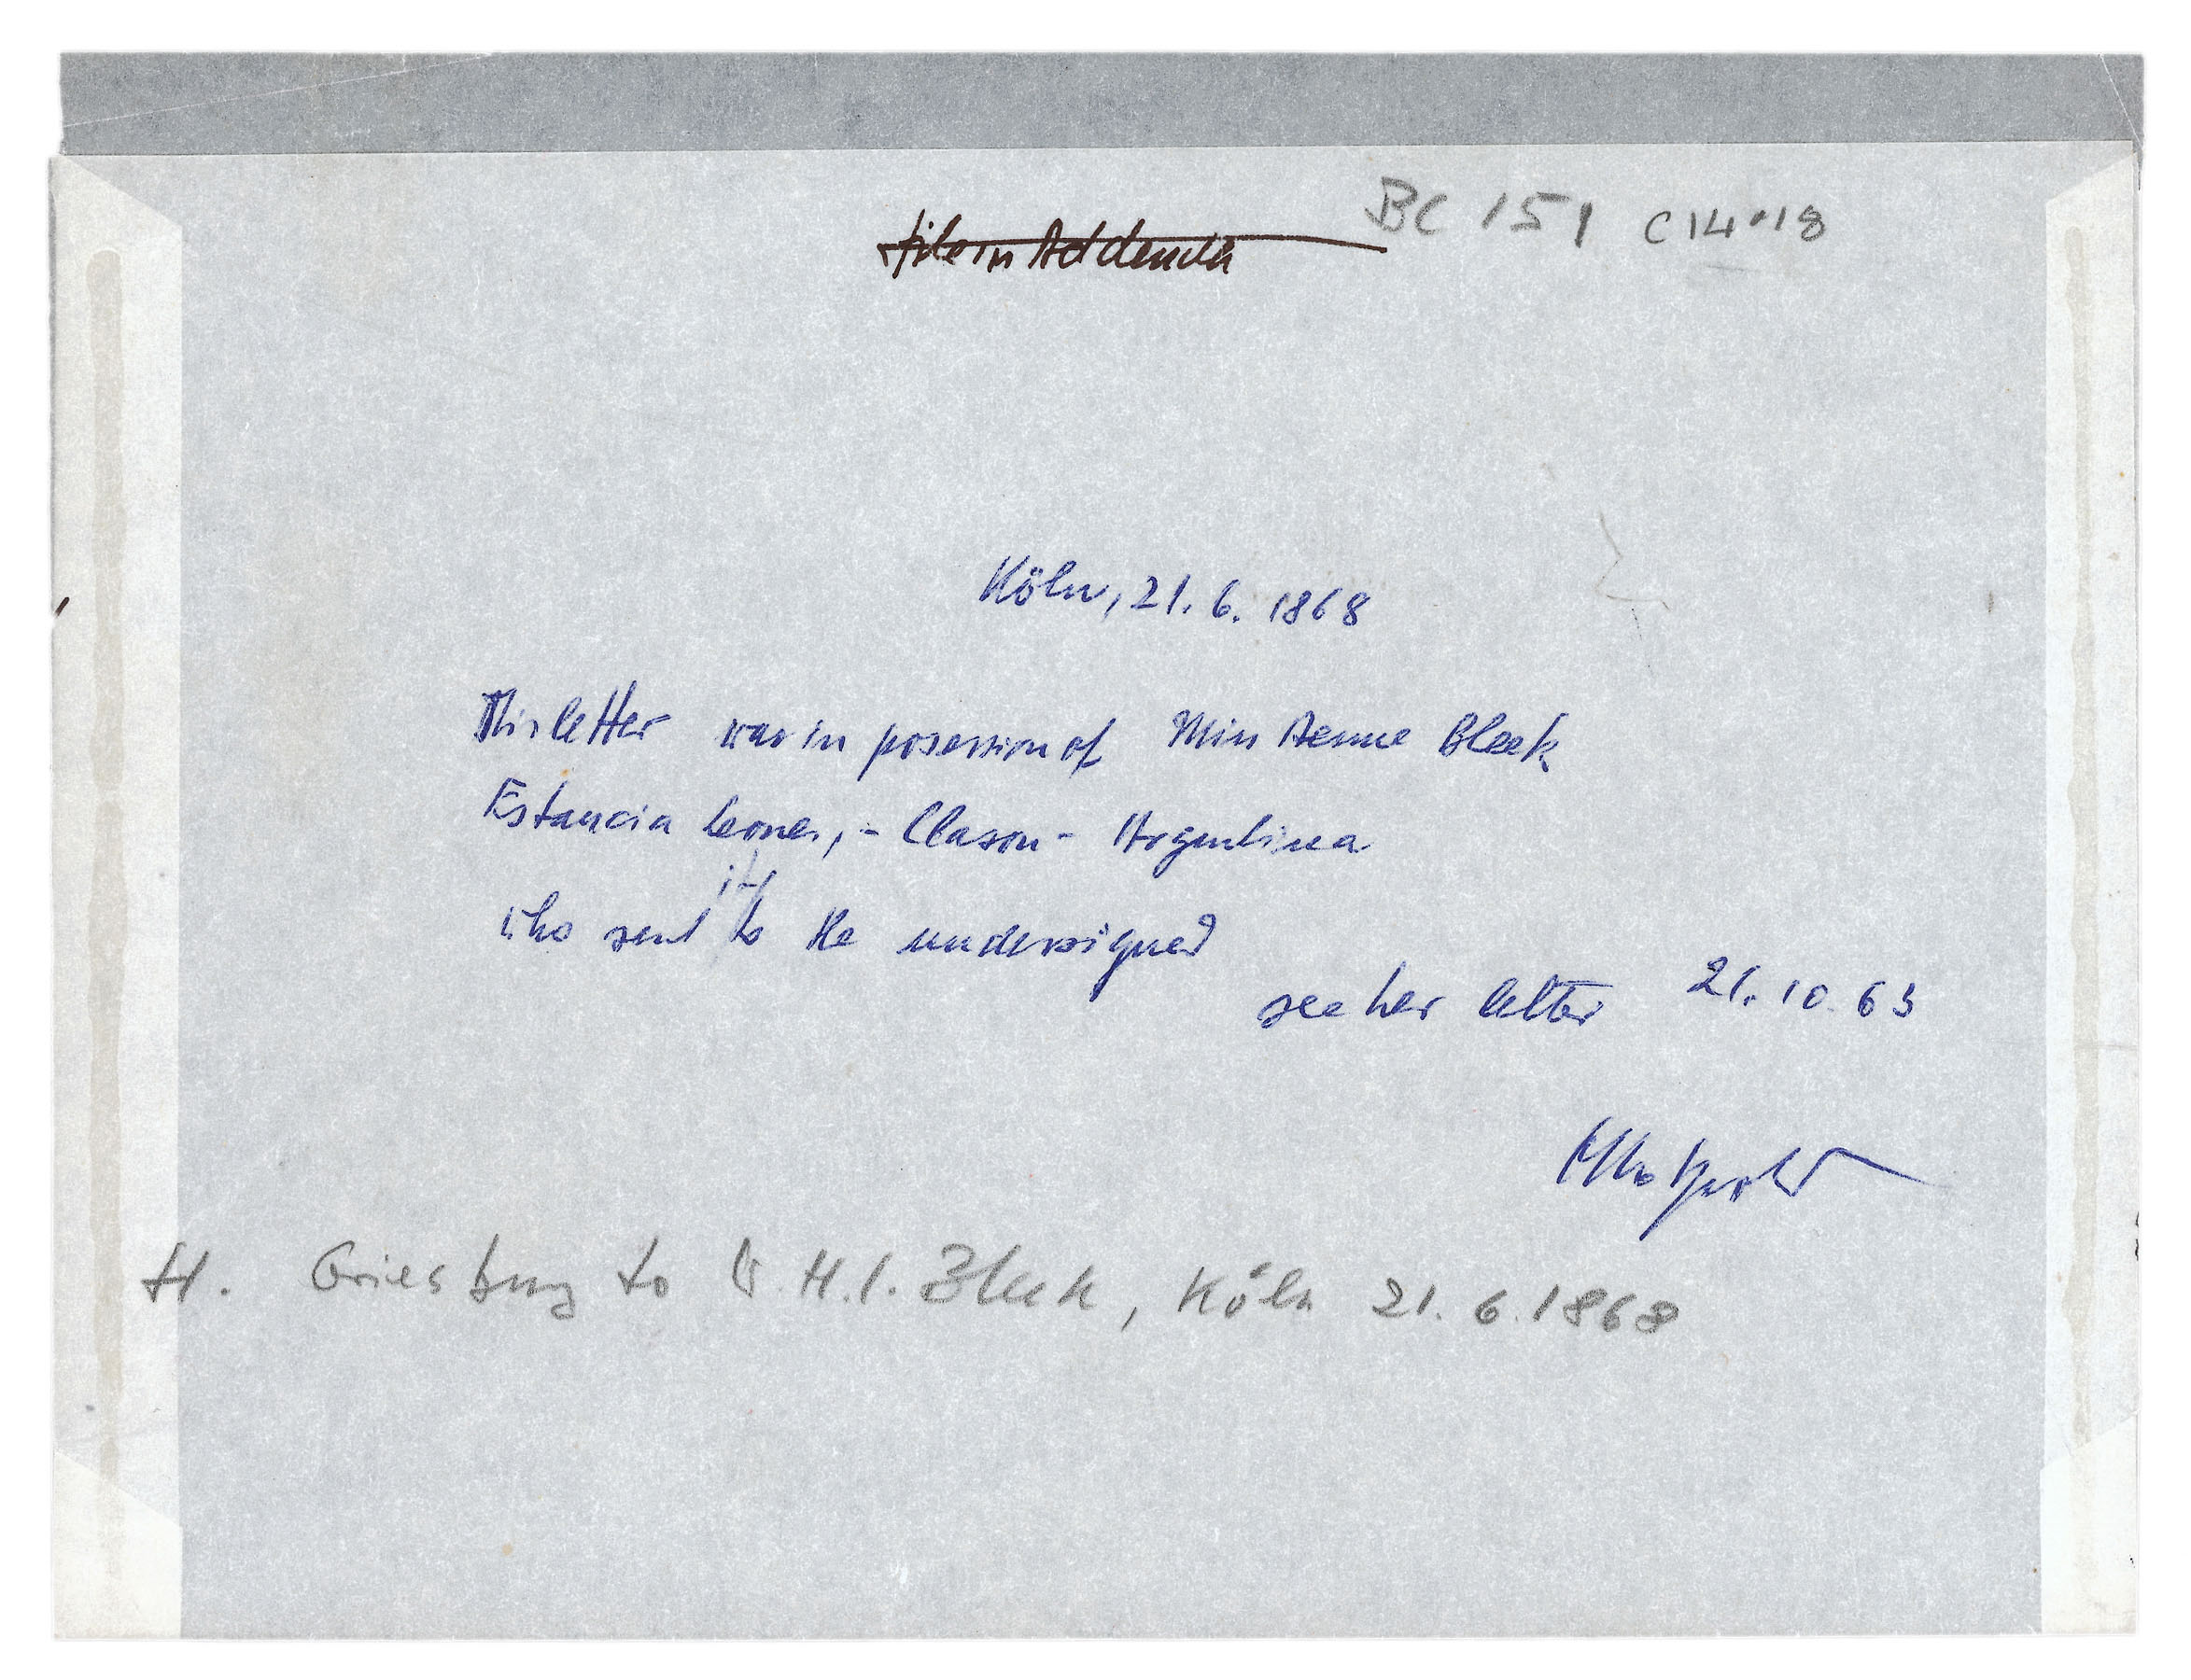 File in Addenda
BC 151 C14.18
Köln, 21. 6. 1868
This letter was in posession of Miss Bleek
Estancia Leones, - Clason - Argentinea
who sent it to the undersigned
see her letter 21. 10. 63
H. to W. H. I. Bleek, Köln 21. 6. 1868